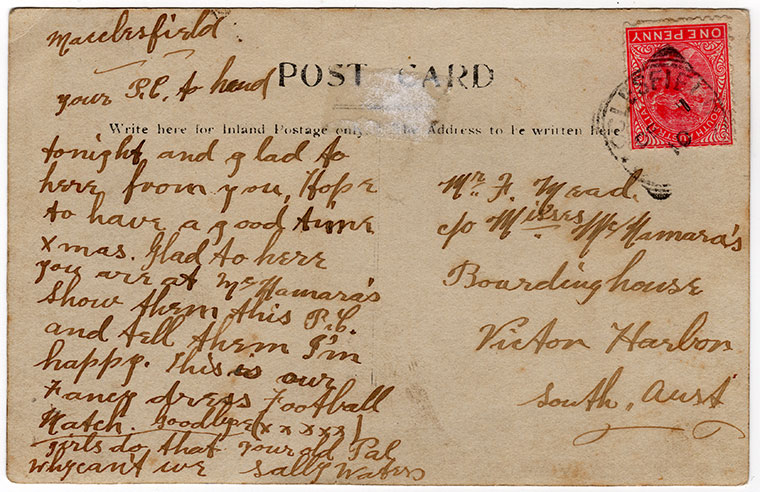 Macclesfield
your P.C. to hand
POST CARD
Write here for Inland Postage only. The Address to be written here
tonight and glad to
here from you, Hope
to have a good time
xmas. Glad to here
you are at McNamara's
Show them this P.C.
and tell them I'm
happy. This is our
Fancy dress Football
Match. Goodbye (x x x x x)
girls do that your old Pal
why can't we Sally Waters
Mr. F. Mead.
c/o Misses McNamara's
Boardinghouse
Victor Harbor
South, Aust
ONE PENNY
SOUTH AUSTRALIA